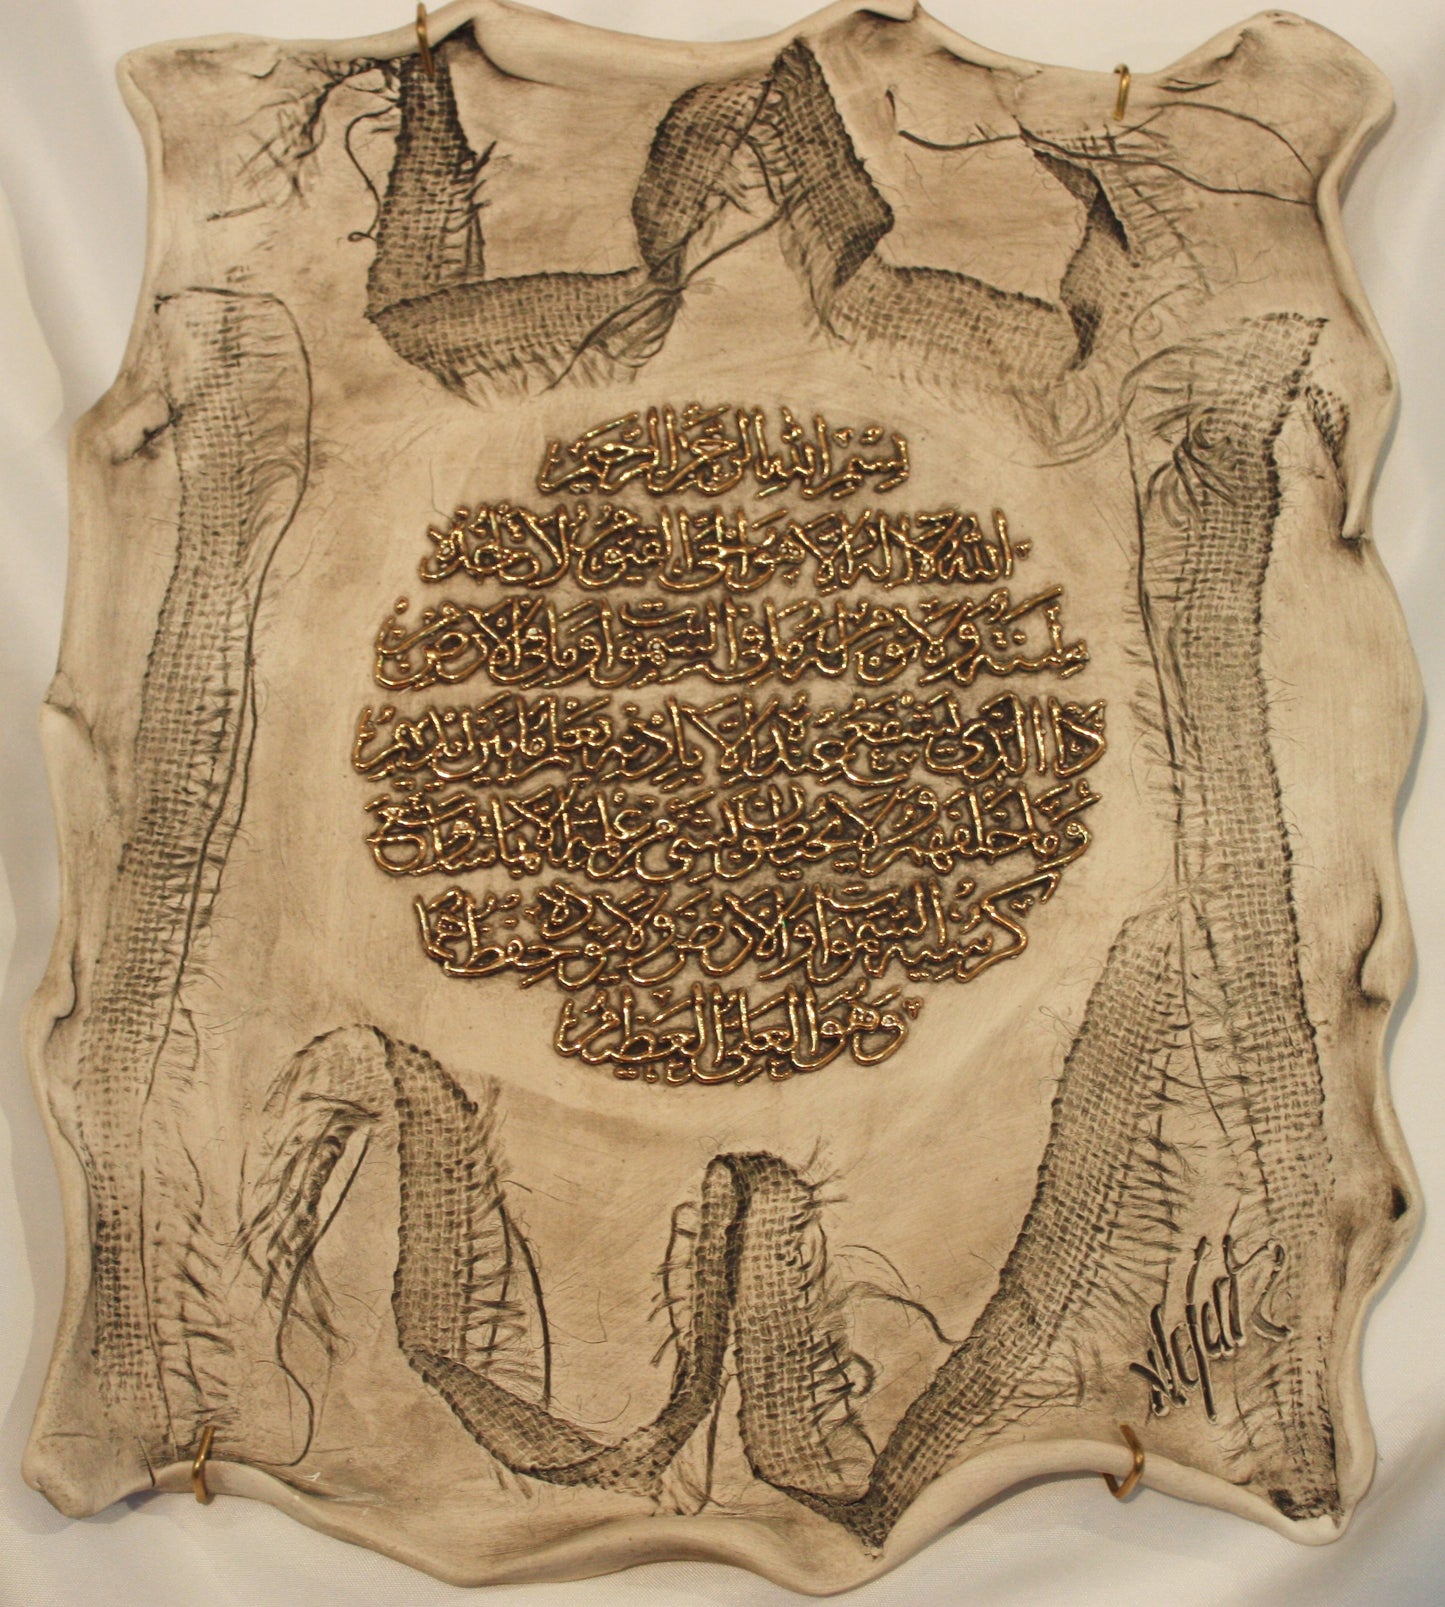 بِسْمِ اللهِ الرَّحْمٰنِ الرَّحِيمِ
اَللهُ لَا إِلٰهَ إِلَّا هُوَ الْحَيُّ الْقَيُّومُ لَا تَأْخُذُهُ
سِنَةٌ وَلَا نَوْمٌ لَهُ مَا فِي السَّمٰوَاتِ وَمَا فِي الْأَرْضِ مَنْ
ذَا الَّذِي يَشْفَعُ عِنْدَهُ إِلَّا بِإِذْنِهِ يَعْلَمُ مَا بَيْنَ أَيْدِيهِمْ
وَمَا خَلْفَهُمْ وَلَا يُحِيطُونَ بِشَيْءٍ مِنْ عِلْمِهِ إِلَّا بِمَا شَاءَ وَسِعَ
كُرْسِيُّهُ السَّمٰوَاتِ وَالْأَرْضَ وَلَا يَئُودُهُ حِفْظُهُمَا
وَهُوَ الْعَلِيُّ الْعَظِيمُ